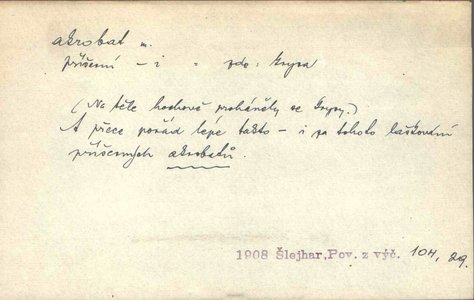 akrobat m.
příšerní – i = zde: krysa
(Na těle hochově proháněly se krysy.)
A přece pořád lépe takto – i za tohoto laškování
příšerných akrobatů.
1908 Šlejhar, Pov. z výč. 104, 29.